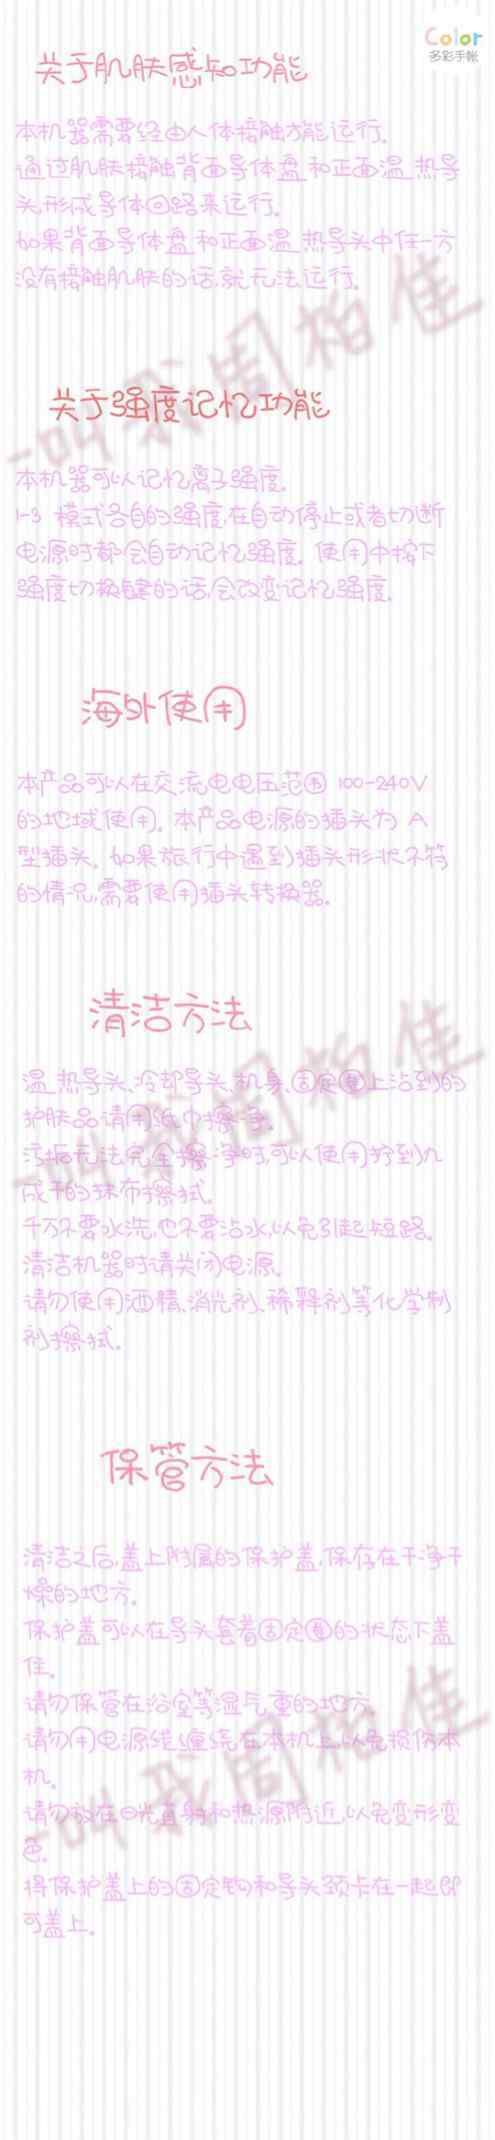 Color
多彩手帐
关于肌肤感知功能
本机器需要经由人体接触才能运行。
通过肌肤接触背面导体盘和正面温热导
头,形成导体回路来运行。
如果背面导体盘和正面温热导头中任一方
没有接触肌肤的话,就无法运行。
关于强度记忆功能
本机器可以记忆离子强度。
1-3 模式各自的强度,在自动停止或者切断
电源时都会自动记忆强度。使用中按下
强度切换键的话,会改变记忆强度。
海外使用
本产品可以在交流电电压范围 100-240V
的地域使用。本产品电源的插头为 A
型插头。如果旅行中遇到插头形状不符
的情况,需要使用插头转换器。
清洁方法
温热导头、冷却导头、机身、固定圈上沾到的
护肤品请用纸巾擦净。
污垢无法完全擦净时,可以使用拧到九
成干的抹布擦拭。
千万不要水洗,也不要沾水,以免引起短路。
清洁机器时请关闭电源。
请勿使用酒精、消光剂、稀释剂等化学制
剂擦拭。
保管方法
清洁之后,盖上附属的保护盖,保存在干净干
燥的地方。
保护盖可以在导头套着固定圈的状态下盖
住。
请勿保管在浴室等湿气重的地方
请勿用电源线缠绕在本机上,以免损伤本
机。
请勿放在日光直射和热源附近,以免变形变
色。
将保护盖上的固定钩和导头颈卡在一起即
可盖上。
-叫我周柏佳
-叫我周柏佳
-叫我周柏佳